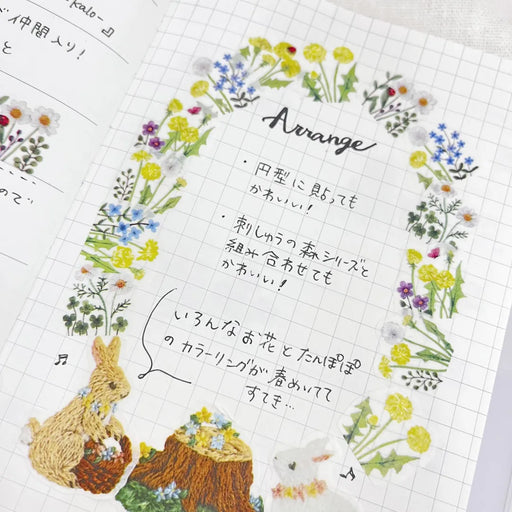 kalo-』
仲間入り!
と
ので
Arrange
・円型に貼っても
かわいい!
・刺しゅうの森シリーズと
組み合わせても
かわいい!
いろんなお花とたんぽぽ
のカラーリングが春めいてて
すてき…